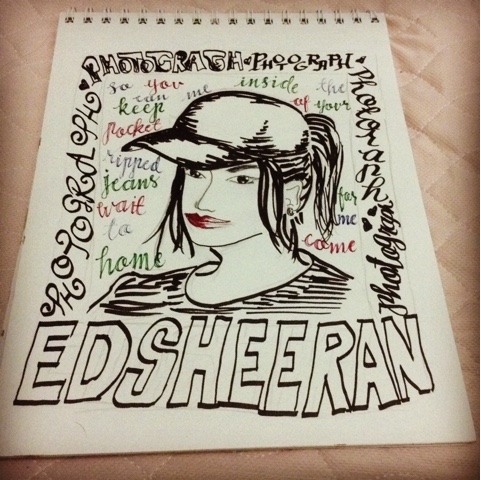 PHOTOGRAPH PHOTOGRAPH
PHOTOGRAPH
so you inside the
can me
keep of your
pocket
ripped
jeans
wait for
to me
home come
PHOTOGRAPH
photograph
ED SHEERAN